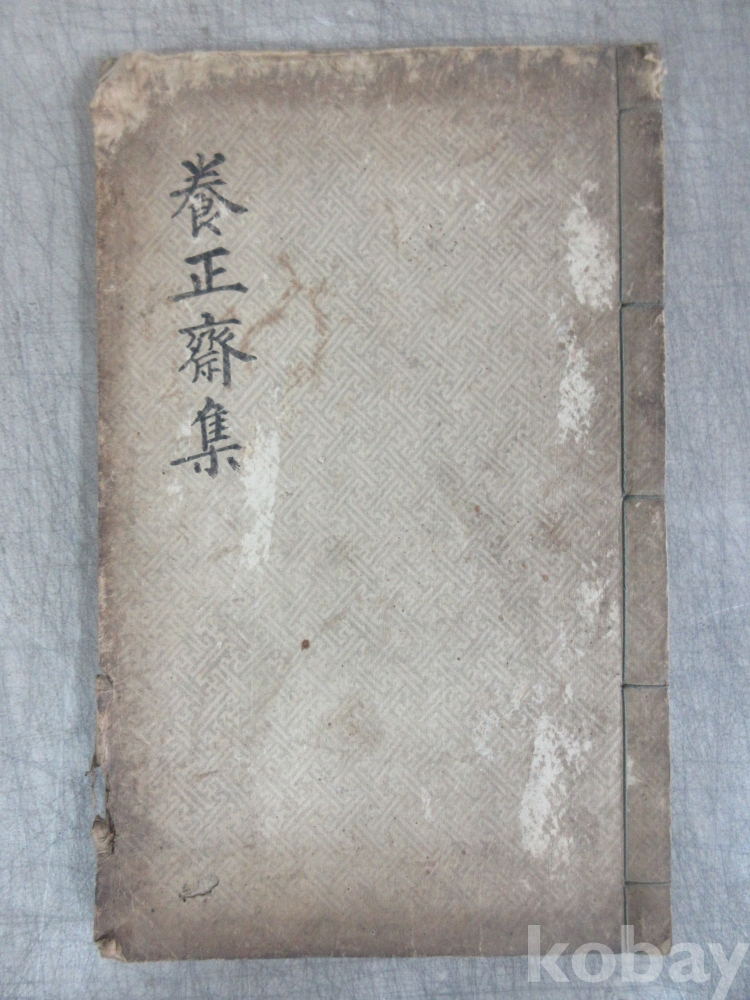 養正齋集
kobay